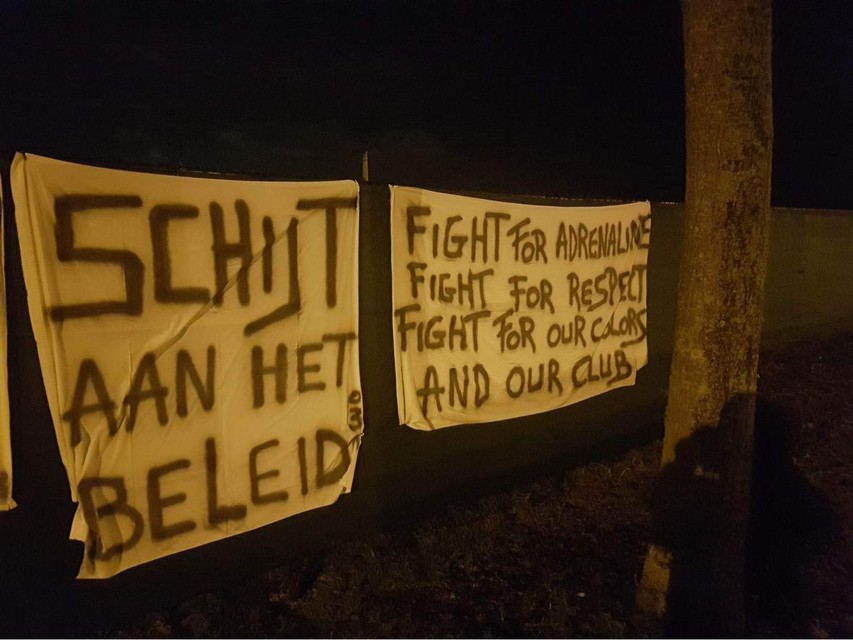 SCHIJT
AAN HET
03
BELEID
FIGHT FOR ADRENALINE
FIGHT FOR RESPECT
FIGHT FOR OUR COLORS
AND OUR CLUB